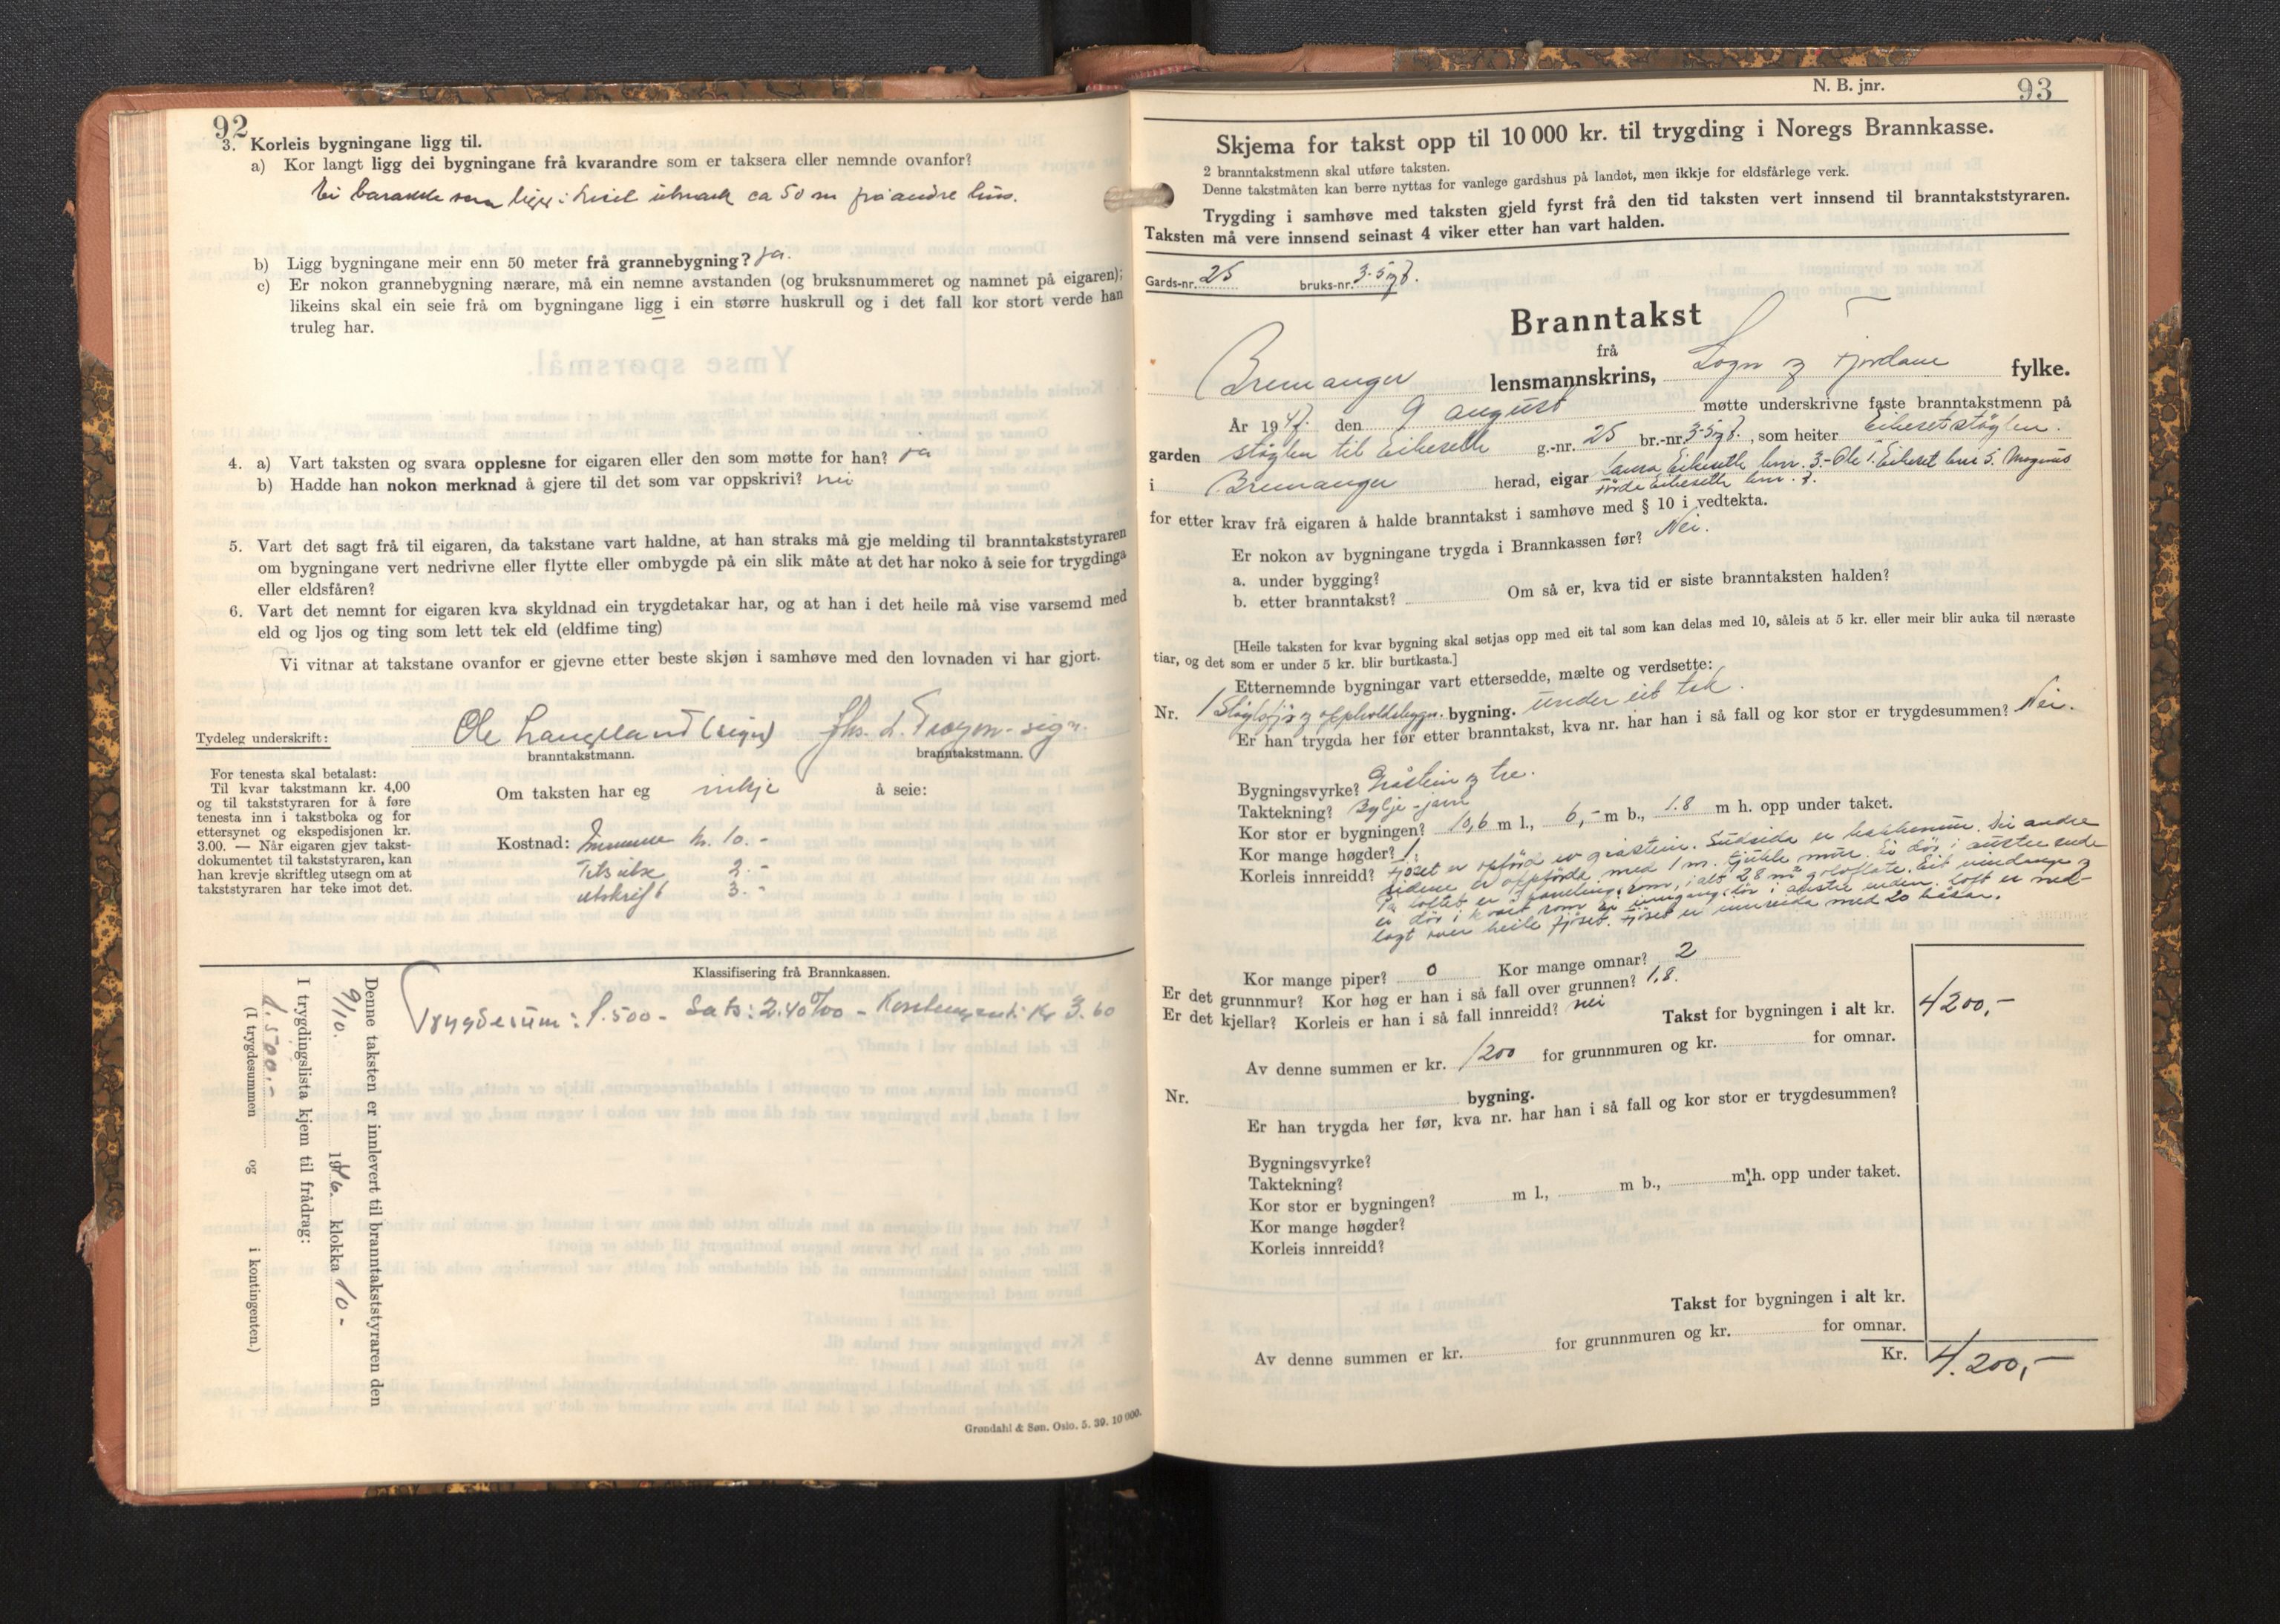 92
3. Korleis bygningane ligg til.
a) Kor langt ligg dei bygningane frå kvarandre som er taksera eller nemnde ovanfor?
Ei barakke som ligg i utmark ca 50 m frå andre hus.
b) Ligg bygningane meir enn 50 meter frå grannebygning? ja.
c) Er nokon grannebygning nærare, må ein nemne avstanden (og bruksnummeret og namnet på eigaren);
likeins skal ein seie frå om bygningane ligg i ein større huskrull og i det fall kor stort verde han
truleg har.
4. a) Vart taksten og svara opplesne for eigaren eller den som møtte for han? ja
b) Hadde han nokon merknad å gjere til det som var oppskrivi? nei
5. Vart det sagt frå til eigaren, da takstane vart haldne, at han straks må gje melding til branntakststyraren
om bygningane vert nedrivne eller flytte eller ombygde på ein slik måte at det har noko å seie for trygdinga
eller eldsfåren?
6. Vart det nemnt for eigaren kva skyldnad ein trygdetakar har, og at han i det heile må vise varsemd med
eld og ljos og ting som lett tek eld (eldfime ting)
Vi vitnar at takstane ovanfor er gjevne etter beste skjøn i samhøve med den lovnaden vi har gjort.
Tydeleg underskrift: Ole Langeland (sign) sign.
branntakstmann. branntakstmann.
For tenesta skal betalast:
Til kvar takstmann kr. 4,00
og til takststyraren for å føre
tenesta inn i takstboka og for
ettersynet og ekspedisjonen kr.
3.00. — Når eigaren gjev takst-
dokumentet til takststyraren, kan
han krevje skriftleg utsegn om at
takststyraren har teke imot det.
Om taksten har eg inkje å seie:
Kostnad: kr. 10.-
2.-
utskrift 3.-
Klassifisering frå Brannkassen.
Trygdesum: 1.500- Sats: 2.40 ‰ - Kontingent: Kr 3.60
Denne taksten er innlevert til branntakststyraren den
9/10. 1946. klokka 10-
I trygdingslista kjem til frådrag:
1.500.-
(I trygdesummen og i kontingenten.)
Grøndahl & Søn. Oslo. 5. 39. 10 000.
N. B. jnr. 93
Skjema for takst opp til 10 000 kr. til trygding i Noregs Brannkasse.
2 branntakstmenn skal utføre taksten.
Denne takstmåten kan berre nyttas for vanlege gardshus på landet, men ikkje for eldsfårlege verk.
Trygding i samhøve med taksten gjeld fyrst frå den tid taksten vert innsend til branntakststyraren.
Taksten må vere innsend seinast 4 viker etter han vart halden.
Gards-nr. 25 bruks-nr. 3-5 og 7.
Branntakst
frå
Bremanger lensmannskrins, Sogn og Fjordane fylke.
År 1947. den 9 august møtte underskrivne faste branntakstmenn på
garden støylen til Eikeseth g.-nr. 25 br.-nr. 3-5 og 7., som heiter Eikesetstøylen.
i Bremanger herad, eigar Laura Eikeseth bnr. 3.- Ole I. Eikeset bnr 5. Magnus
Förde Eikeseth bnr. 7.
for etter krav frå eigaren å halde branntakst i samhøve med § 10 i vedtekta.
Er nokon av bygningane trygda i Brannkassen før? Nei.
a. under bygging?
b. etter branntakst? Om så er, kva tid er siste branntaksten halden?
[Heile taksten for kvar bygning skal setjas opp med eit tal som kan delas med 10, såleis at 5 kr. eller meir blir auka til næraste
tiar, og det som er under 5 kr. blir burtkasta.]
Etternemnde bygningar vart ettersedde, mælte og verdsette:
Nr. 1 Støylsfjøs og opholdsbygn. bygning. under eit tak.
Er han trygda her før etter branntakst, kva nr. har han i så fall og kor stor er trygdesummen? Nei.
Bygningsvyrke? Gråstein og tre.
Taktekning? Bylje-jarn
Kor stor er bygningen? 10,6 m l., 6,- m b., 1.8 m h. opp under taket.
Kor mange høgder? 1.
Korleis innreidd? Fjøset er opförd av gråstein. Sudsida er bakkemur. Dei andre
sidene er oppförde med 1 m. tjukke mur. Ei dör i austre ende
På loftet er 3 rom, i alt 28 m² golvflate. Eit vindauge og
ei dör i kvart rom og inngangsdör i austre enden. Loft er ned-
lagt over heile fjöset. Fjöset er innreida med 20 båsar.
Kor mange piper? 0 Kor mange omnar? 2
Er det grunnmur? Kor høg er han i så fall over grunnen? 1,8.
Er det kjellar? Korleis er han i så fall innreidd? nei
Takst for bygningen i alt kr. 4200,-
Av denne summen er kr. 1200 for grunnmuren og kr. for omnar.
Nr. bygning.
Er han trygda her før, kva nr. har han i så fall og kor stor er trygdesummen?
Bygningsvyrke?
Taktekning?
Kor stor er bygningen? m l., m b., m h. opp under taket.
Kor mange høgder?
Korleis innreidd?
Takst for bygningen i alt kr.
Av denne summen er kr. for grunnmuren og kr. for omnar.
Kr. 4.200,-